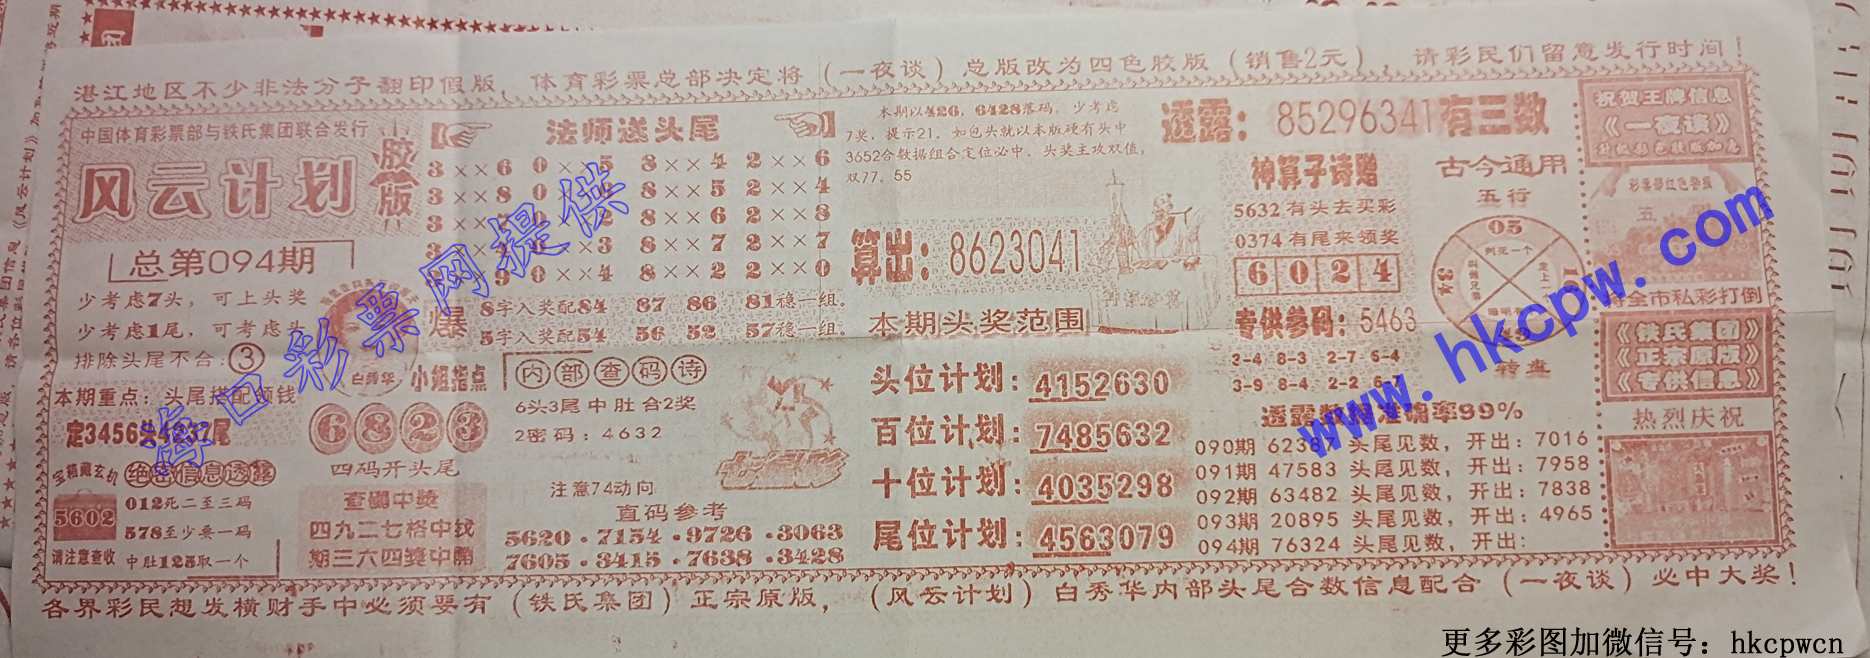 湛江地区不少非法分子翻印假版，体育彩票总部决定将（一夜谈）总版改为四色胶版（销售2元），请彩民们留意发行时间！
中国体育彩票部与铁氏集团联合发行
风云计划
胶版
总第094期
少考虑7头，可上头奖
少考虑1尾，可考虑头
排除头尾不合：③
本期重点：头尾搭配领钱
定3456
尾
宝箱藏玄机
绝密信息透露
5602
请注意查收
012死二至三码
578至少要一码
中肚125取一个
法师送头尾
3××6 0××5 8××4 2××6
3××8 0 8××5 2××4
8××6 2××8
3 8××7 2××7
0××4 8××2 2××0
爆
8字入奖配84 87 86 81稳一组。
5字入奖配54 56 52 57稳一组。
白秀华
小姐指点
6823
四码开头尾
查码中奖
四九二七格中线
期三六四奖中
内部查码诗
6头3尾中肚合2奖
2密码：4632
七星彩
注意74动向
直码参考
5620·7154·9726·3063
7605·3415·7638·3428
本期以426，6428落码，少考虑
7奖，提示21，如包头就以本版硬有头中
3652合数据组合定位必中，头奖主攻双值，
双77、55
算出：8623041
本期头奖范围
头位计划：4152630
百位计划：7485632
十位计划：4035298
尾位计划：4563079
透露：85296341有三数
神算子诗赠
5632有头去买彩
0374有尾来领奖
6024
专供参码：5463
3-4 8-3 2-7 5-4
3-9 8-4 2-2 6-7
古今通用
五行
05
转盘
透露数据准确率99%
090期 6238 头尾见数，开出：7016
091期 47583 头尾见数，开出：7958
092期 63482 头尾见数，开出：7838
093期 20895 头尾见数，开出：4965
094期 76324 头尾见数，开出：
祝贺王牌信息
《一夜谈》
全市私彩打倒
《铁氏集团》
《正宗原版》
《专供信息》
热烈庆祝
各界彩民想发横财手中必须要有（铁氏集团）正宗原版，（风云计划）白秀华内部头尾合数信息配合（一夜谈）必中大奖！
海口彩票网提供
www.hkcpw.com
更多彩图加微信号：hkcpwcn